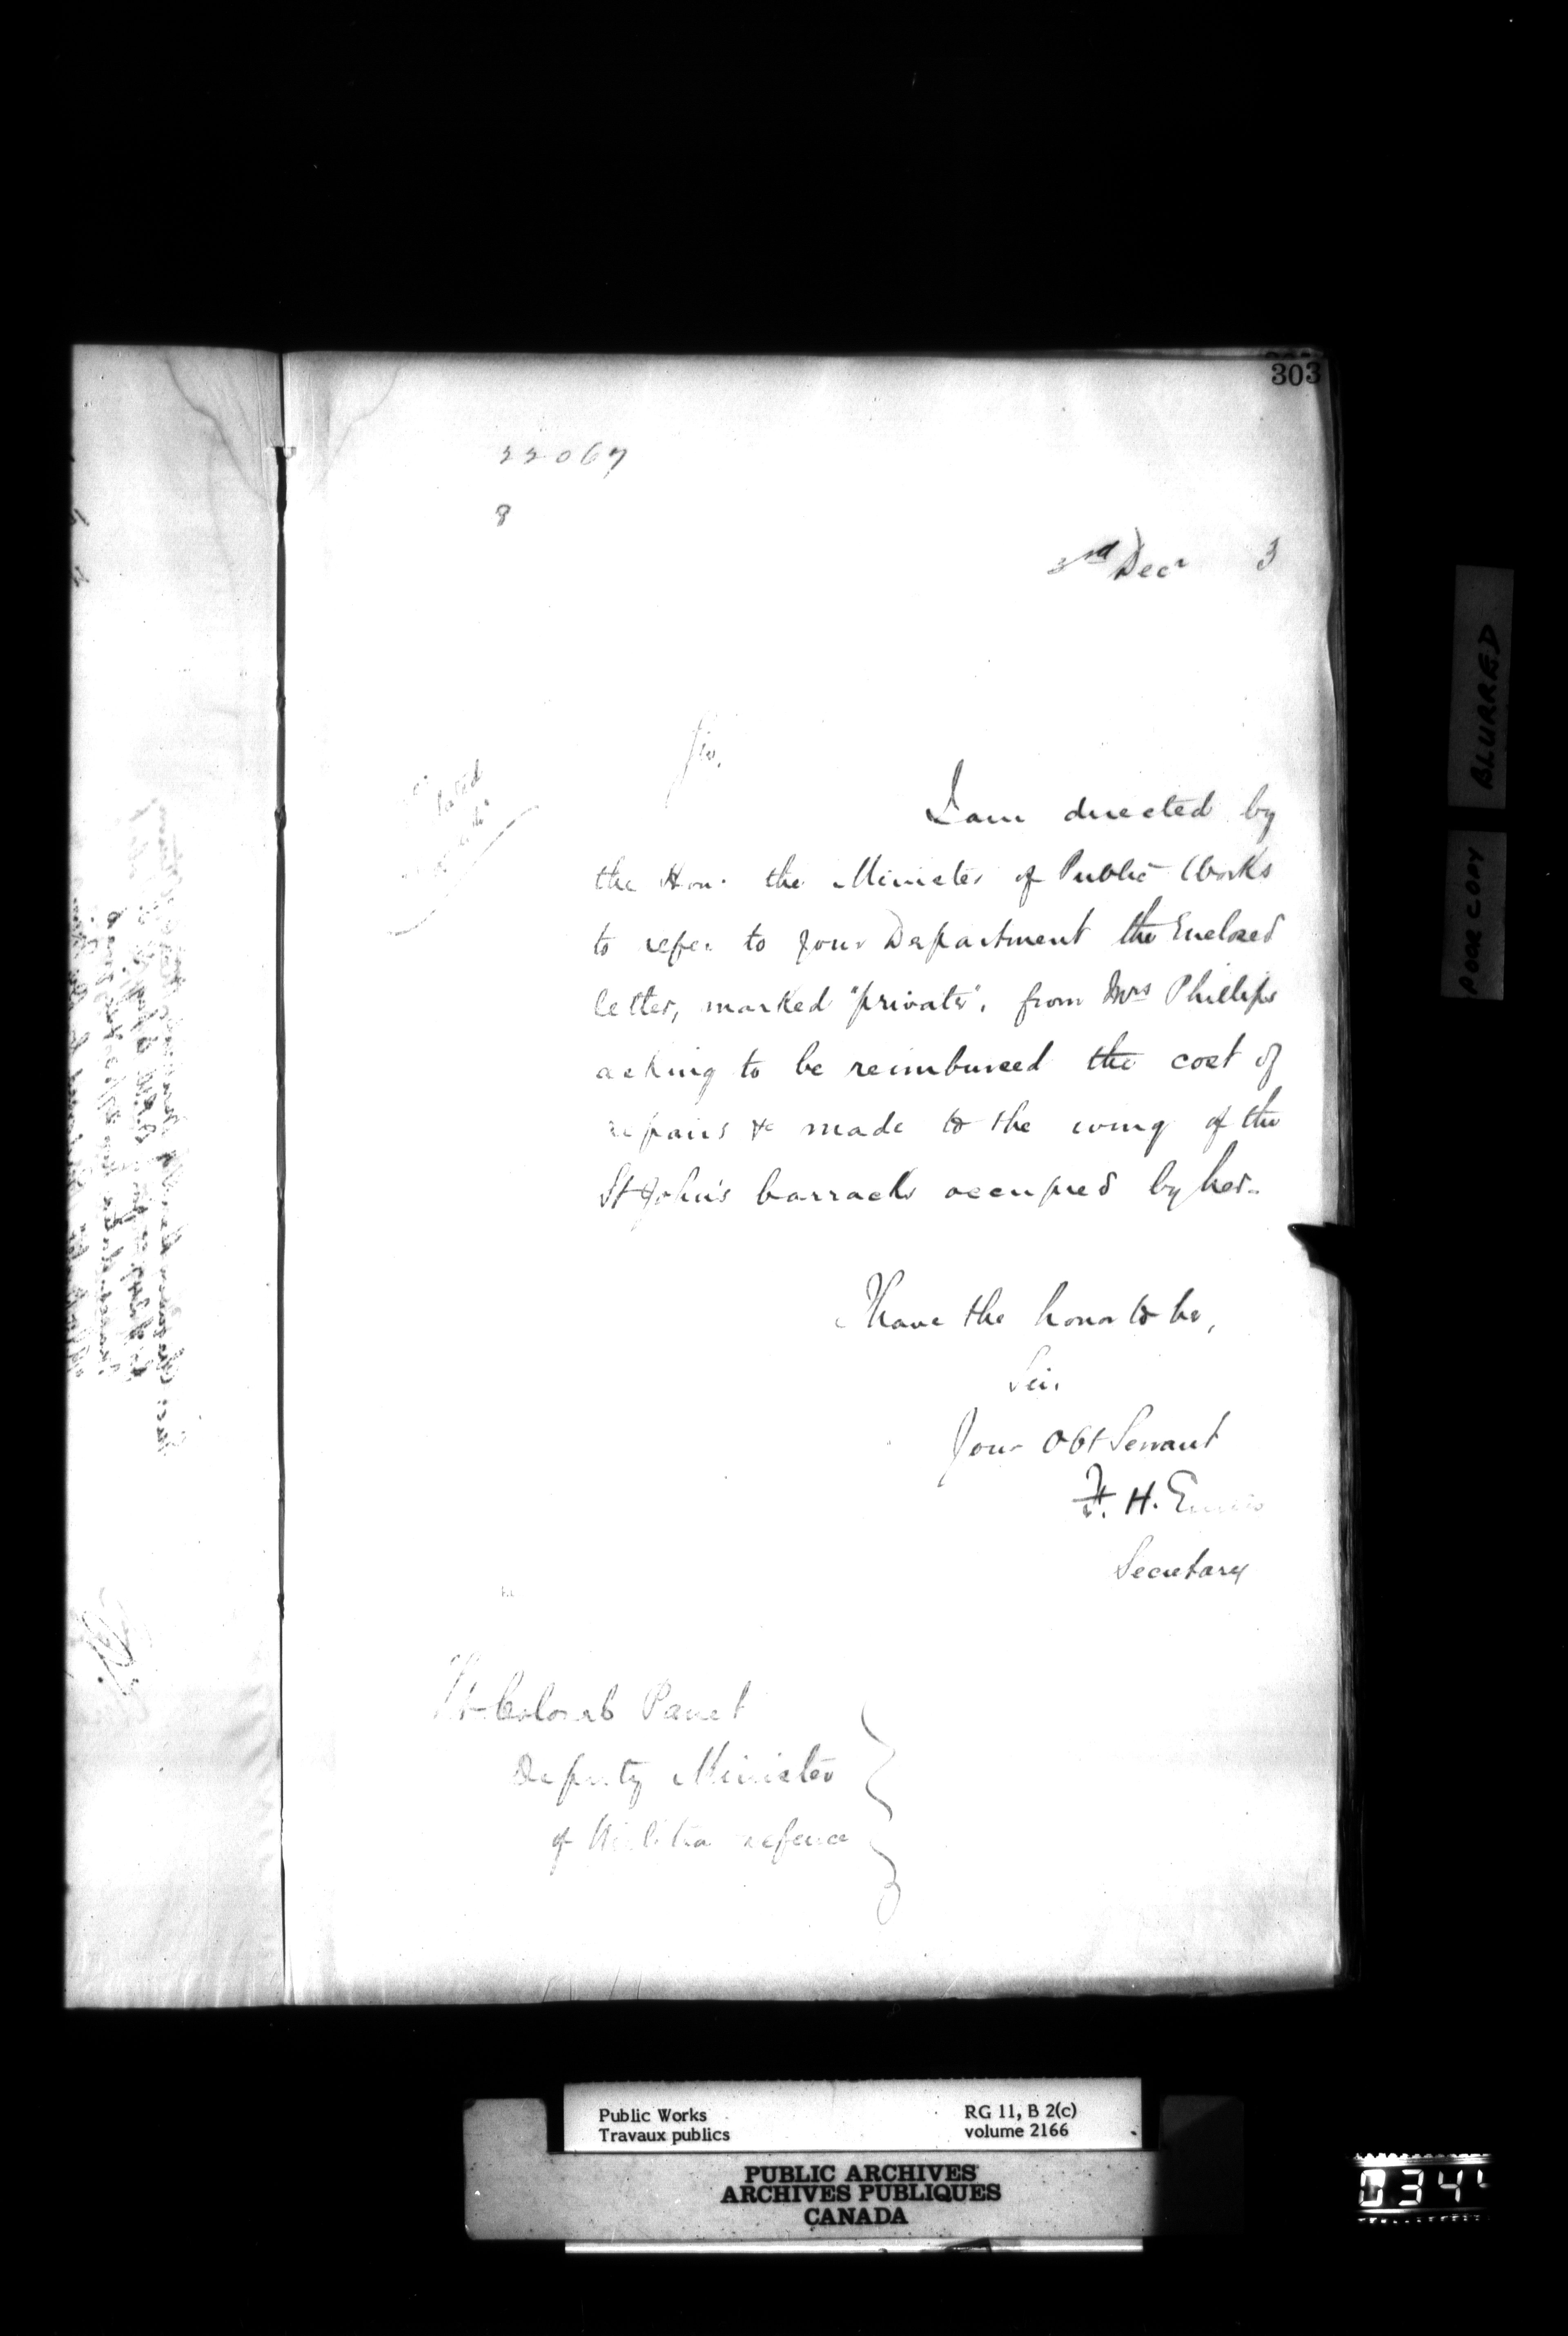 303
22067
8
3rd Decr 3
Sir,
I am directed by
the Hon. the Minister of Public Works
to refer to your Department the Enclosed
letter, marked "private", from Mrs Phillips
asking to be reimbursed the cost of
repairs &c made to the wing of the
St John's barracks occupied by her.
I have the honor to be,
Sir,
Your Obt Servant
F. H. Ennis
Secretary
Lt-Colonel Panet
Deputy Minister
of Militia defence
POOR COPY BLURRED
Public Works
Travaux publics
RG 11, B 2(c)
volume 2166
PUBLIC ARCHIVES
ARCHIVES PUBLIQUES
CANADA